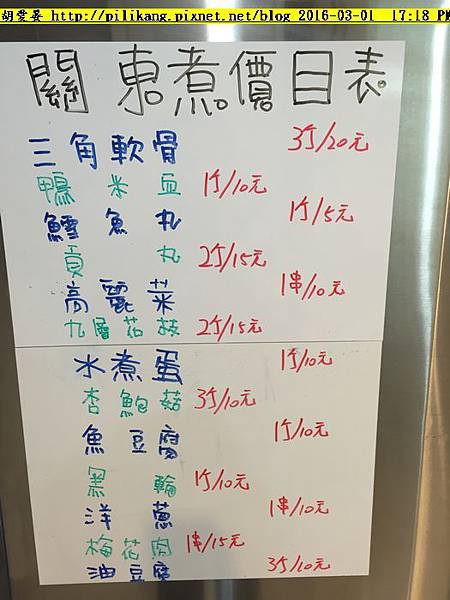 胡雯晏 http://pilikang.pixnet.net/blog 2016-03-01 17:18 PM
關東煮價目表
三角軟骨 3个/20元
鴨米血 1个/10元
鱈魚丸 1个/5元
貢丸 2个/15元
高麗菜 1串/10元
九層花枝 2个/15元
水煮蛋 1个/10元
杏鮑菇 3个/10元
魚豆腐 1个/10元
黑輪 1个/10元
洋蔥 1串/10元
梅花肉 1串/15元
油豆腐 3个/10元